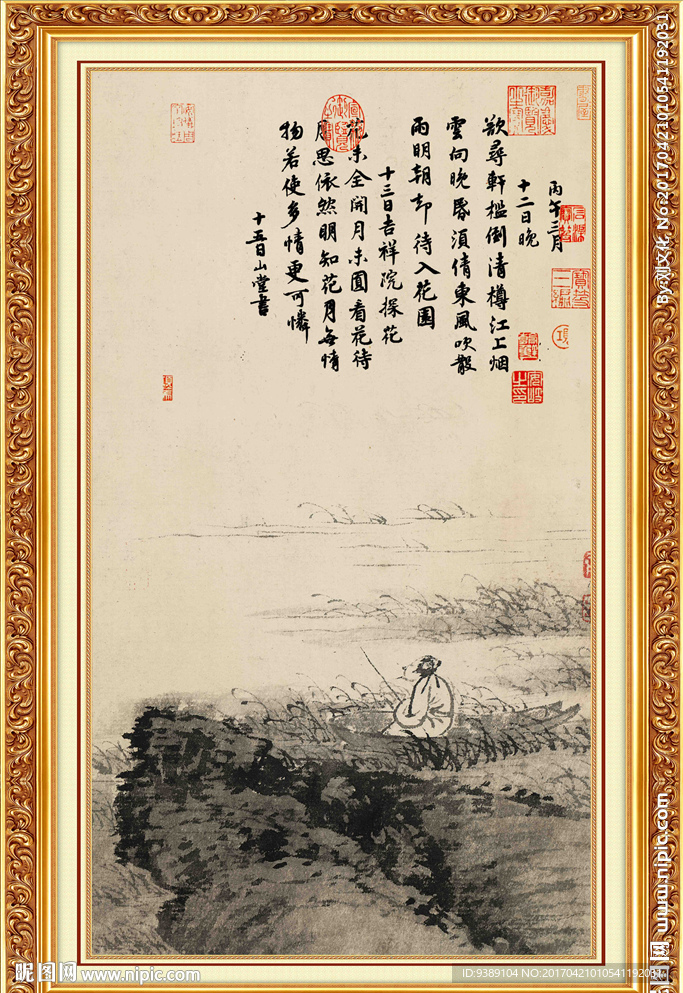 丙午三月
十二日晚
欲尋軒檻倒清樽江上烟
雲向晚昏須倩東風吹散
雨明朝却待入花園
十三日吉祥院探花
花未全開月未圓看花待
月思依然明知花月無情
物若使多情更可憐
十五日山堂書
嘉慶御覽之寶
寶笈三編
No:20170421010541192031
www.nipic.com
昵图网 www.nipic.com
ID:9389104 NO:20170421010541192031